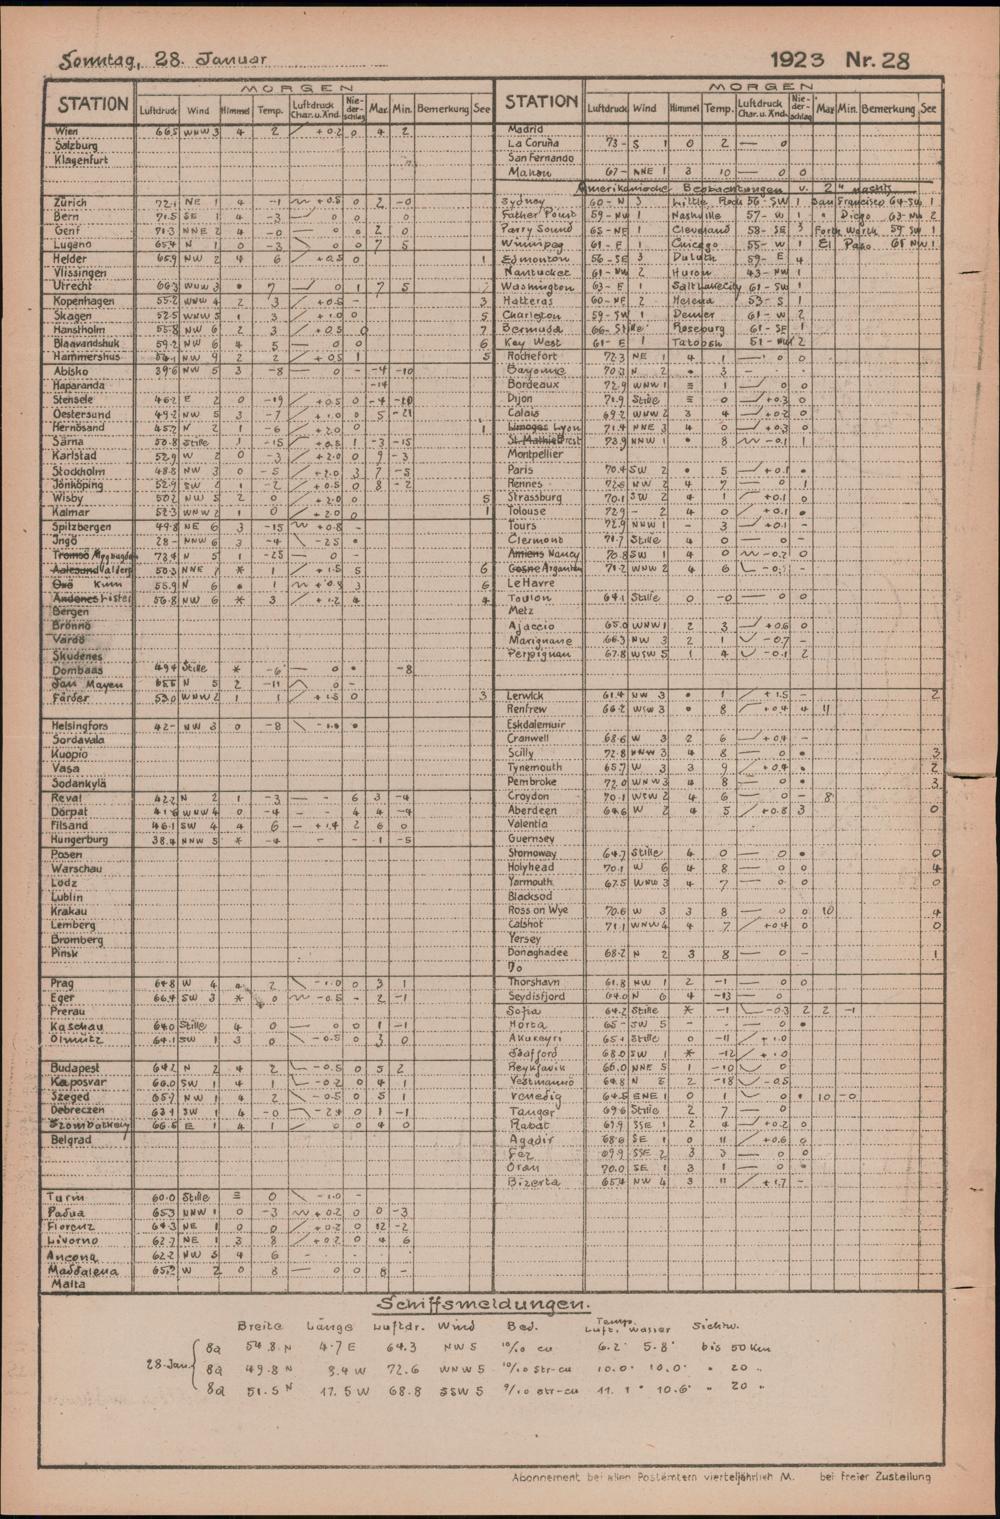 Sonntag, 28. Januar
1923 Nr. 28
MORGEN
STATION Luftdruck Wind Himmel Temp. Luftdruck Char. u. Änd. Nie-der-schlag Max. Min. Bemerkung See
Wien 66.5 WNW 3 4 2 +0.2 0 4 2
Salzburg
Klagenfurt
Zürich 72.1 NE 1 4 -1 +0.5 0 2 -0
Bern 71.5 SE 1 4 -3 — 0 0
Genf 71.3 NNE 2 4 -0 — 0 0 2 0
Lugano 65.4 N 1 0 -3 0 0 7 5
Helder 65.9 NW 2 4 6 +0.5 0 1
Vlissingen
Utrecht 66.3 WNW 3 • 7 0 1 7 5
Kopenhagen 55.2 WNW 4 2 3 +0.5 — 3
Skagen 52.5 WNW 5 1 3 +1.0 0 5
Hansholm 55.8 NW 6 2 3 +0.5 0 7
Blaavandshuk 59.2 NW 6 4 5 — 0 0 6
Hammershus NW 9 2 2 +0.5 1 5
Abisko 39.6 NW 5 3 -8 — 0 — -4 -10
Haparanda -14
Stensele 46.2 E 2 0 -19 +0.5 0 -4
Oestersund 49.2 NW 5 3 -7 +1.0 0 5 -21
Hernösand 45.2 N 2 1 -6 +2.0 0 1
Särna 50.8 Stille 1 -15 +0.8 1 -3 -15
Karlstad 52.9 W 2 0 -3 +2.0 0 9 -3
Stockholm 48.8 NW 3 0 -5 +2.0 3 7 -5
Jönköping 52.9 SW 2 1 -2 +0.5 0 8 -2
Wisby 50.2 NW 5 2 0 +2.0 0 5
Kalmar 52.3 WNW 2 1 0 +2.0 0 1
Spitzbergen 49.8 NE 6 3 -15 +0.8 —
Ingö 28 — NNW 6 3 -4 -2.5 •
Tromsö 73.4 N 5 1 -25 — 0 —
Aalesund 50.3 NNE 7 * 1 +1.5 5 6
Oxö Kinn 55.9 N 6 • 1 3 6
Andenes Lister 56.8 NW 6 * 3 +1.2 4 4
Bergen
Brönnö
Vardö
Skudenes
Dombaas 49.4 Stille * -6 — 0 • -8
Jan Mayen N 5 2 -11 0 —
Färder 53.0 WNW 2 1 1 +1.5 0 3
Helsingfors 42 — NW 3 0 -8 •
Sordavala
Kuopio
Vasa
Sodankylä
Reval 42.2 N 2 1 -3 — - 6 3 -4
Dorpat WNW 4 0 -4 — - 4 4 -4
Filsand 46.1 SW 4 4 6 — +1.4 2 6 0
Hungerburg 38.4 NNW 5 * -4 - - 1 -5
Posen
Warschau
Lodz
Lublin
Krakau
Lemberg
Bromberg
Pinsk
Prag 64.8 W 4 2 -1.0 0 3 1
Eger 66.4 SW 3 * 0 -0.5 - 2 -1
Prerau
Kaschau 64.0 Stille 4 0 — 0 0 1 -1
Olmütz 64.1 SW 1 3 0 -0.5 0 3 0
Budapest 64.2 N 2 4 2 -0.5 0 5 2
Kaposvar 66.0 SW 1 4 1 -0.2 0 4 1
Szeged 65.7 NW 1 4 2 -0.5 0 5 1
Debreczen 63.1 SW 1 4 -0 -2.4 0 1 -1
Szombathely 66.6 E 1 4 1 0 0 4 0
Belgrad
Turin 60.0 Stille ≡ 0 -1.0 -
Padua 65.3 NNW 1 0 -3 +0.2 0 0 -3
Florenz 64.3 NE 1 0 0 +0.2 0 12 -2
Livorno 62.7 NE 1 3 8 +0.2 0 4 6
Ancona 62.2 NW 5 4 6 - .
Maddalena 65.2 W 2 0 8 — 0 0 8 -
Malta
MORGEN
STATION Luftdruck Wind Himmel Temp. Luftdruck Char. u. Änd. Nie-der-schlag Max. Min. Bemerkung See
Madrid
La Coruña 73 - S 1 0 2 — 0
San Fernando
Mahon 67 - NNE 1 3 10 — 0 0
Amerikanische Beobachtungen v. nachts
Sydney 60 - N 3 Little Rock 56 - SW 1 San Francisco 64 - SW 1
Father Point 59 - NW 1 Nashville 57 - W 1 " Diego 63 - NW 2
Parry Sound 65 - NE 1 Cleveland 58 - SE 3 Forth Worth 59 SW 1
Winnipeg 61 - E 1 Chicago 55 - W 1 El Paso 61 NW 1
Edmonton 56 - SE 3 Duluth 59 - E 4
Nantucket 61 - NW 2 Huron 43 - NW 1
Washington 63 - E 1 Salt Lake City 61 - SW 1
Hatteras 60 - NE 2 Helena 53 - S 1
Charleston 59 - SW 1 Denver 61 - W 2
Bermuda 66 - Stille Roseburg 61 - SE 1
Key West 61 - E 1 Tatoosh 51 - 2
Rochefort 72.3 NE 1 4 1 0 0
Bayonne 70.3 N 2 • 3 —
Bordeaux 72.9 WNW 1 ≡ 1 0 0
Dijon 71.9 Stille ≡ 0 +0.3 0
Calais 69.2 WNW 2 3 4 +0.2 0
Limoges Lyon 71.4 NNE 3 4 0 +0.3 0
St. Mathieu Brest 73.9 NNW 1 • 8 -0.1 1
Montpellier
Paris 70.4 SW 2 • 5 +0.1 •
Rennes 72.6 NW 2 4 7 — 0 1
Strassburg 70.1 SW 2 4 1 +0.1 0
Tolouse 72.9 - 2 4 0 +0.1 •
Tours 72.9 NNW 1 - 3 +0.1 -
Clermont 71.7 Stille 4 0 — 0 -
Amiens Nancy 70.8 SW 1 4 0 -0.2 0
Cosne Argentan 71.2 WNW 2 4 6 -
Le Havre
Toulon 64.1 Stille 0 -0 — 0 0
Metz
Ajaccio 65.0 WNW 1 2 3 +0.6 0
Marignane 66.3 NW 3 2 1 -0.7 -
Perpignan 67.8 WSW 5 1 4 -0.1 2
Lerwick 61.4 NW 3 • 1 +1.5 - 2
Renfrew 66.2 WSW 3 • 8 +0.4 4 11
Eskdalemuir
Cranwell 68.6 W 3 2 6 +0.4 -
Scilly 72.8 NNW 3 4 8 — 0 • 3
Tynemouth 65.7 W 3 3 9 +0.4 • 2
Pembroke 72.0 WNW 3 4 8 — 0 • 3
Croydon 70.1 WSW 2 4 6 — 0 - 8
Aberdeen 64.6 W 2 4 5 +0.8 3 0
Valentia
Guernsey
Stornoway 64.7 Stille 4 0 — 0 • 0
Holyhead 70.1 W 6 4 8 — 0 0 4
Yarmouth 67.5 WNW 3 4 7 — 0 0 0
Blacksod
Ross on Wye 70.6 W 3 3 8 — 0 0 10 4
Calshot 71.1 WNW 4 4 7 +0.4 0 0
Yersey
Donaghadee 68.2 N 2 3 8 — 0 1
Do
Thorshavn 61.8 NW 1 2 -1 — 0
Seydisfjord 64.0 N 6 4 -13 — 0
Sofia 64.2 Stille * -1 -0.3 2 2 -1
Horta 65 - SW 5 - - — 0 •
Akureyri 65.1 Stille 0 -11 +1.0
Isafford 68.0 SW 1 * -12 +1.0
Reykjavik 66.0 NNE 5 1 -10 0
Vestmannö 64.8 N 5 2 -18 -0.5
Venedig 64.5 ENE 1 0 1 0 • 10 -0
Tanger 69.6 Stille 2 7 — 0
Rabat 69.9 SSE 1 2 4 +0.2 0
Agadir 68.6 SE 1 0 11 +0.6 0
Fez 69.9 SSE 2 3 3 — 0 0
Oran 70.0 SE 1 3 1 — 0
Bizerta 65.4 NW 4 3 11 +1.7 -
Schiffsmeldungen.
Breite Länge Luftdr. Wind Bed. Temp. Luft. Wasser Sichtw.
28. Jan. 8a 54.8 N 4.7 E 64.3 NW 5 10/10 cu 6.2° 5.8° bis 50 Km
8a 49.8 N 3.4 W 72.6 WNW 5 10/10 str-cu 10.0° 10.0° " 20 "
8a 51.5 N 17.5 W 68.8 SSW 5 9/10 str-cu 11.1° 10.6° " 20 "
Abonnement bei allen Postämtern vierteljährlich M. bei freier Zustellung